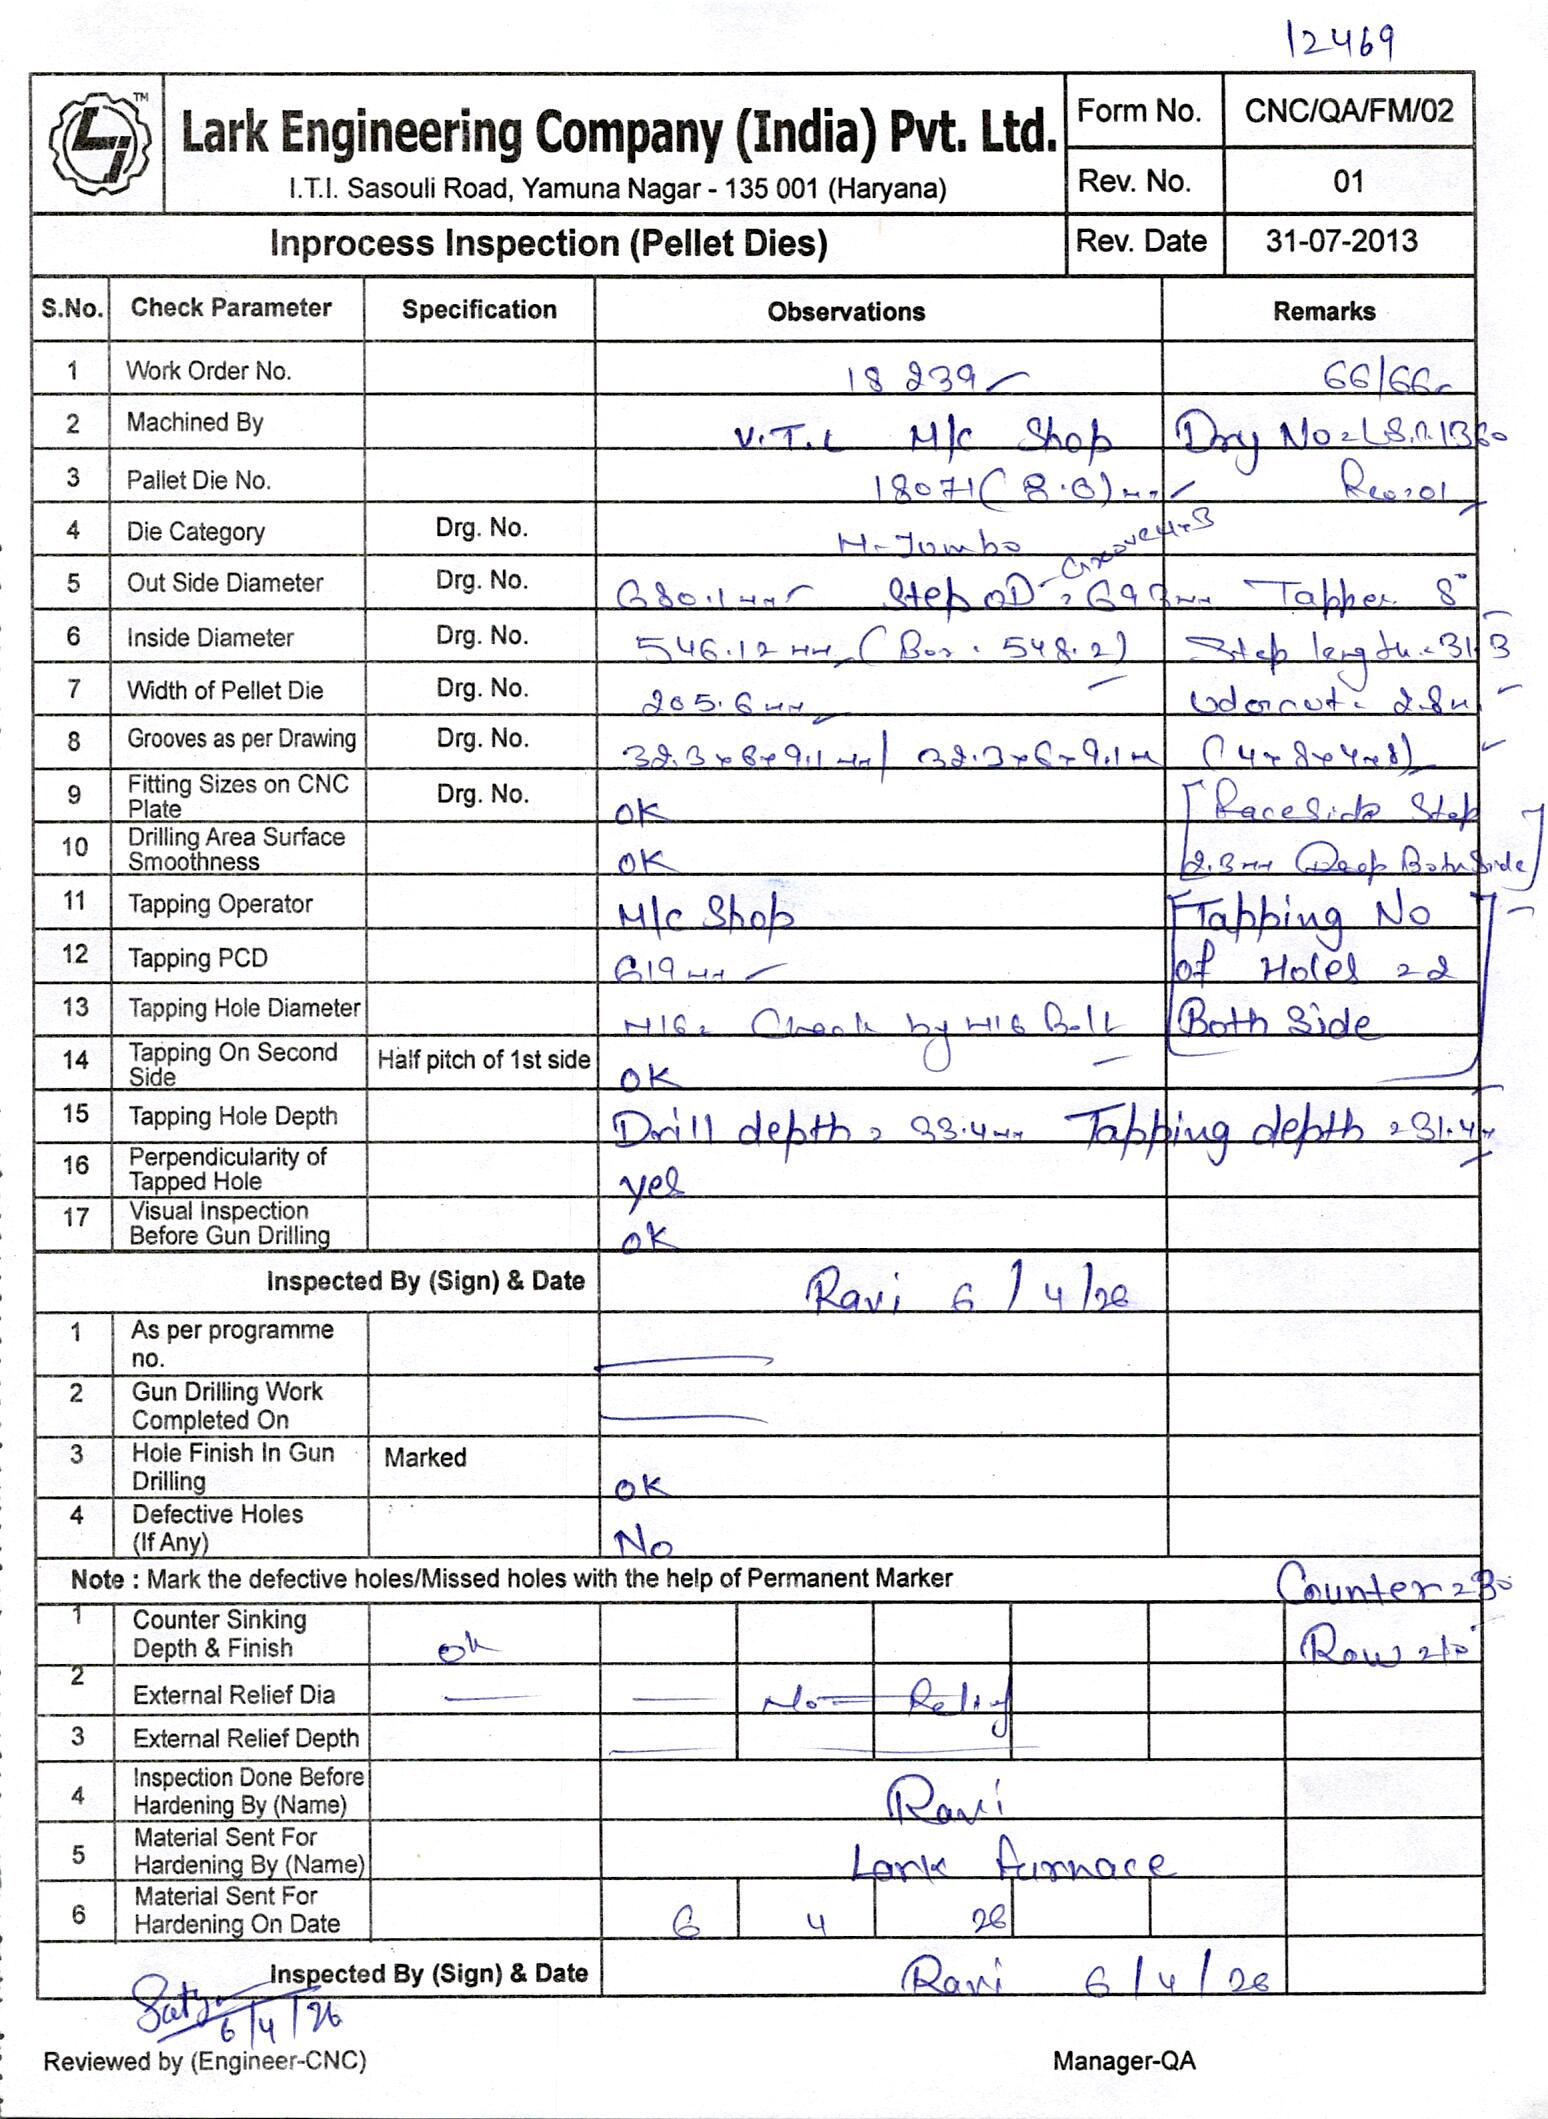 12469
TM
Lark Engineering Company (India) Pvt. Ltd.
I.T.I. Sasouli Road, Yamuna Nagar - 135 001 (Haryana)
Form No. CNC/QA/FM/02
Rev. No. 01
Inprocess Inspection (Pellet Dies) Rev. Date 31-07-2013
S.No. Check Parameter Specification Observations Remarks
1 Work Order No. 18239 66/66
2 Machined By V.T.L M/c Shop
3 Pallet Die No. 18071 (8.0)
4 Die Category Drg. No. M-Jumbo
5 Out Side Diameter Drg. No. 680.1 Step OD Tapper 8°
6 Inside Diameter Drg. No. 546.12 548.2) Step length = 31.3
7 Width of Pellet Die Drg. No. 205.6
8 Grooves as per Drawing Drg. No. 32.3x6x9.1 / 32.3x6x9.1 (4x8x4x8)
9 Fitting Sizes on CNC Plate Drg. No. OK Step
10 Drilling Area Surface Smoothness OK 2.3 Deep Both Side
11 Tapping Operator M/c Shop Tapping No
12 Tapping PCD 619 of Holes = 2
13 Tapping Hole Diameter M16 = Check by M16 Bolt Both Side
14 Tapping On Second Side Half pitch of 1st side OK
15 Tapping Hole Depth Drill depth = 33.4 Tapping depth = 31.4
16 Perpendicularity of Tapped Hole yes
17 Visual Inspection Before Gun Drilling OK
Inspected By (Sign) & Date Ravi 6/4/26
1 As per programme no.
2 Gun Drilling Work Completed On
3 Hole Finish In Gun Drilling Marked OK
4 Defective Holes (If Any) No
Note : Mark the defective holes/Missed holes with the help of Permanent Marker Counter = 30
1 Counter Sinking Depth & Finish ok Row
2 External Relief Dia No Relief
3 External Relief Depth
4 Inspection Done Before Hardening By (Name) Ravi
5 Material Sent For Hardening By (Name) Lark furnace
6 Material Sent For Hardening On Date 6 4 26
Inspected By (Sign) & Date Ravi 6/4/26
6/4/26
Reviewed by (Engineer-CNC) Manager-QA